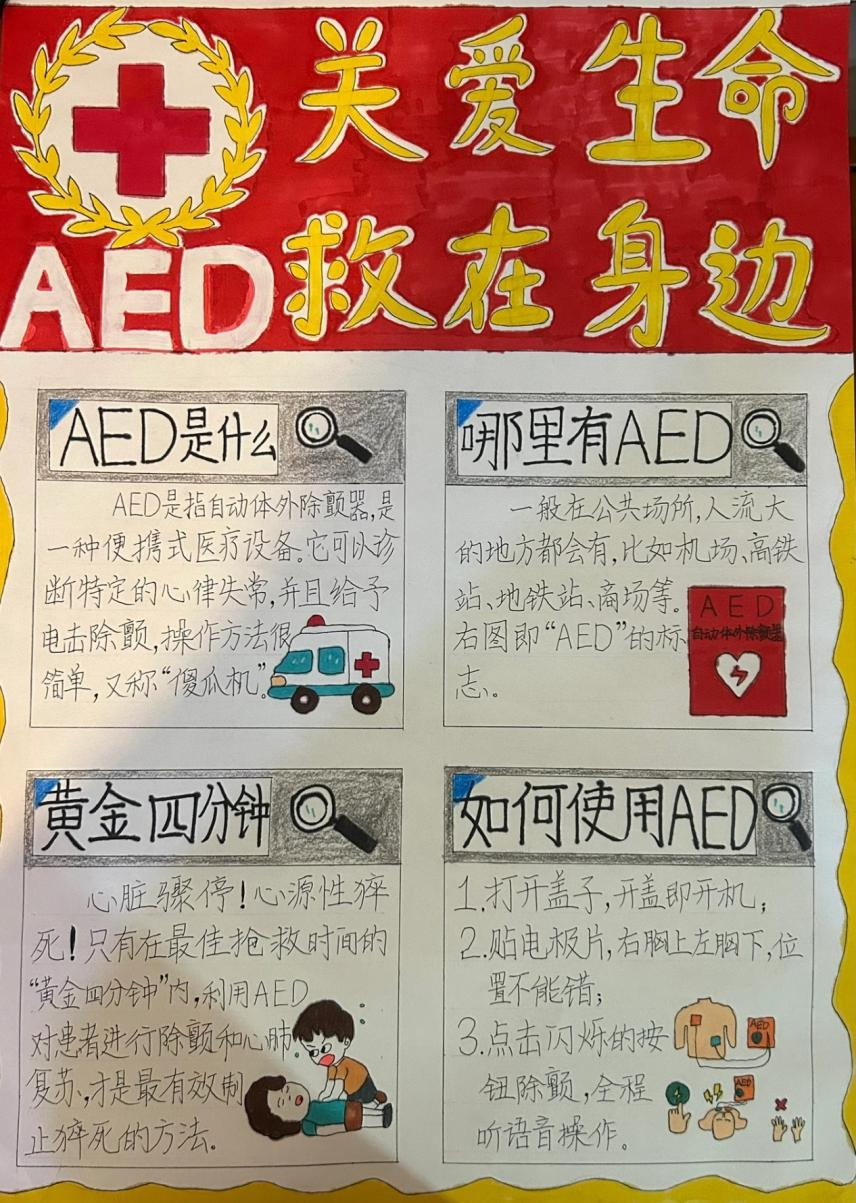 关爱生命
AED救在身边
AED是什么
AED是指自动体外除颤器,是
一种便携式医疗设备。它可以诊
断特定的心律失常,并且给予
电击除颤,操作方法很
简单,又称“傻瓜机”。
哪里有AED
一般在公共场所,人流大
的地方都会有,比如机场、高铁
站、地铁站、商场等。
右图即“AED”的标
志。
AED
自动体外除颤器
黄金四分钟
心脏骤停!心源性猝
死!只有在最佳抢救时间的
“黄金四分钟”内,利用AED
对患者进行除颤和心肺
复苏,才是最有效制
止猝死的方法。
如何使用AED
1.打开盖子,开盖即开机;
2.贴电极片,右胸上左胸下,位
置不能错;
3.点击闪烁的按
钮除颤,全程
听语音操作。
AED
AED